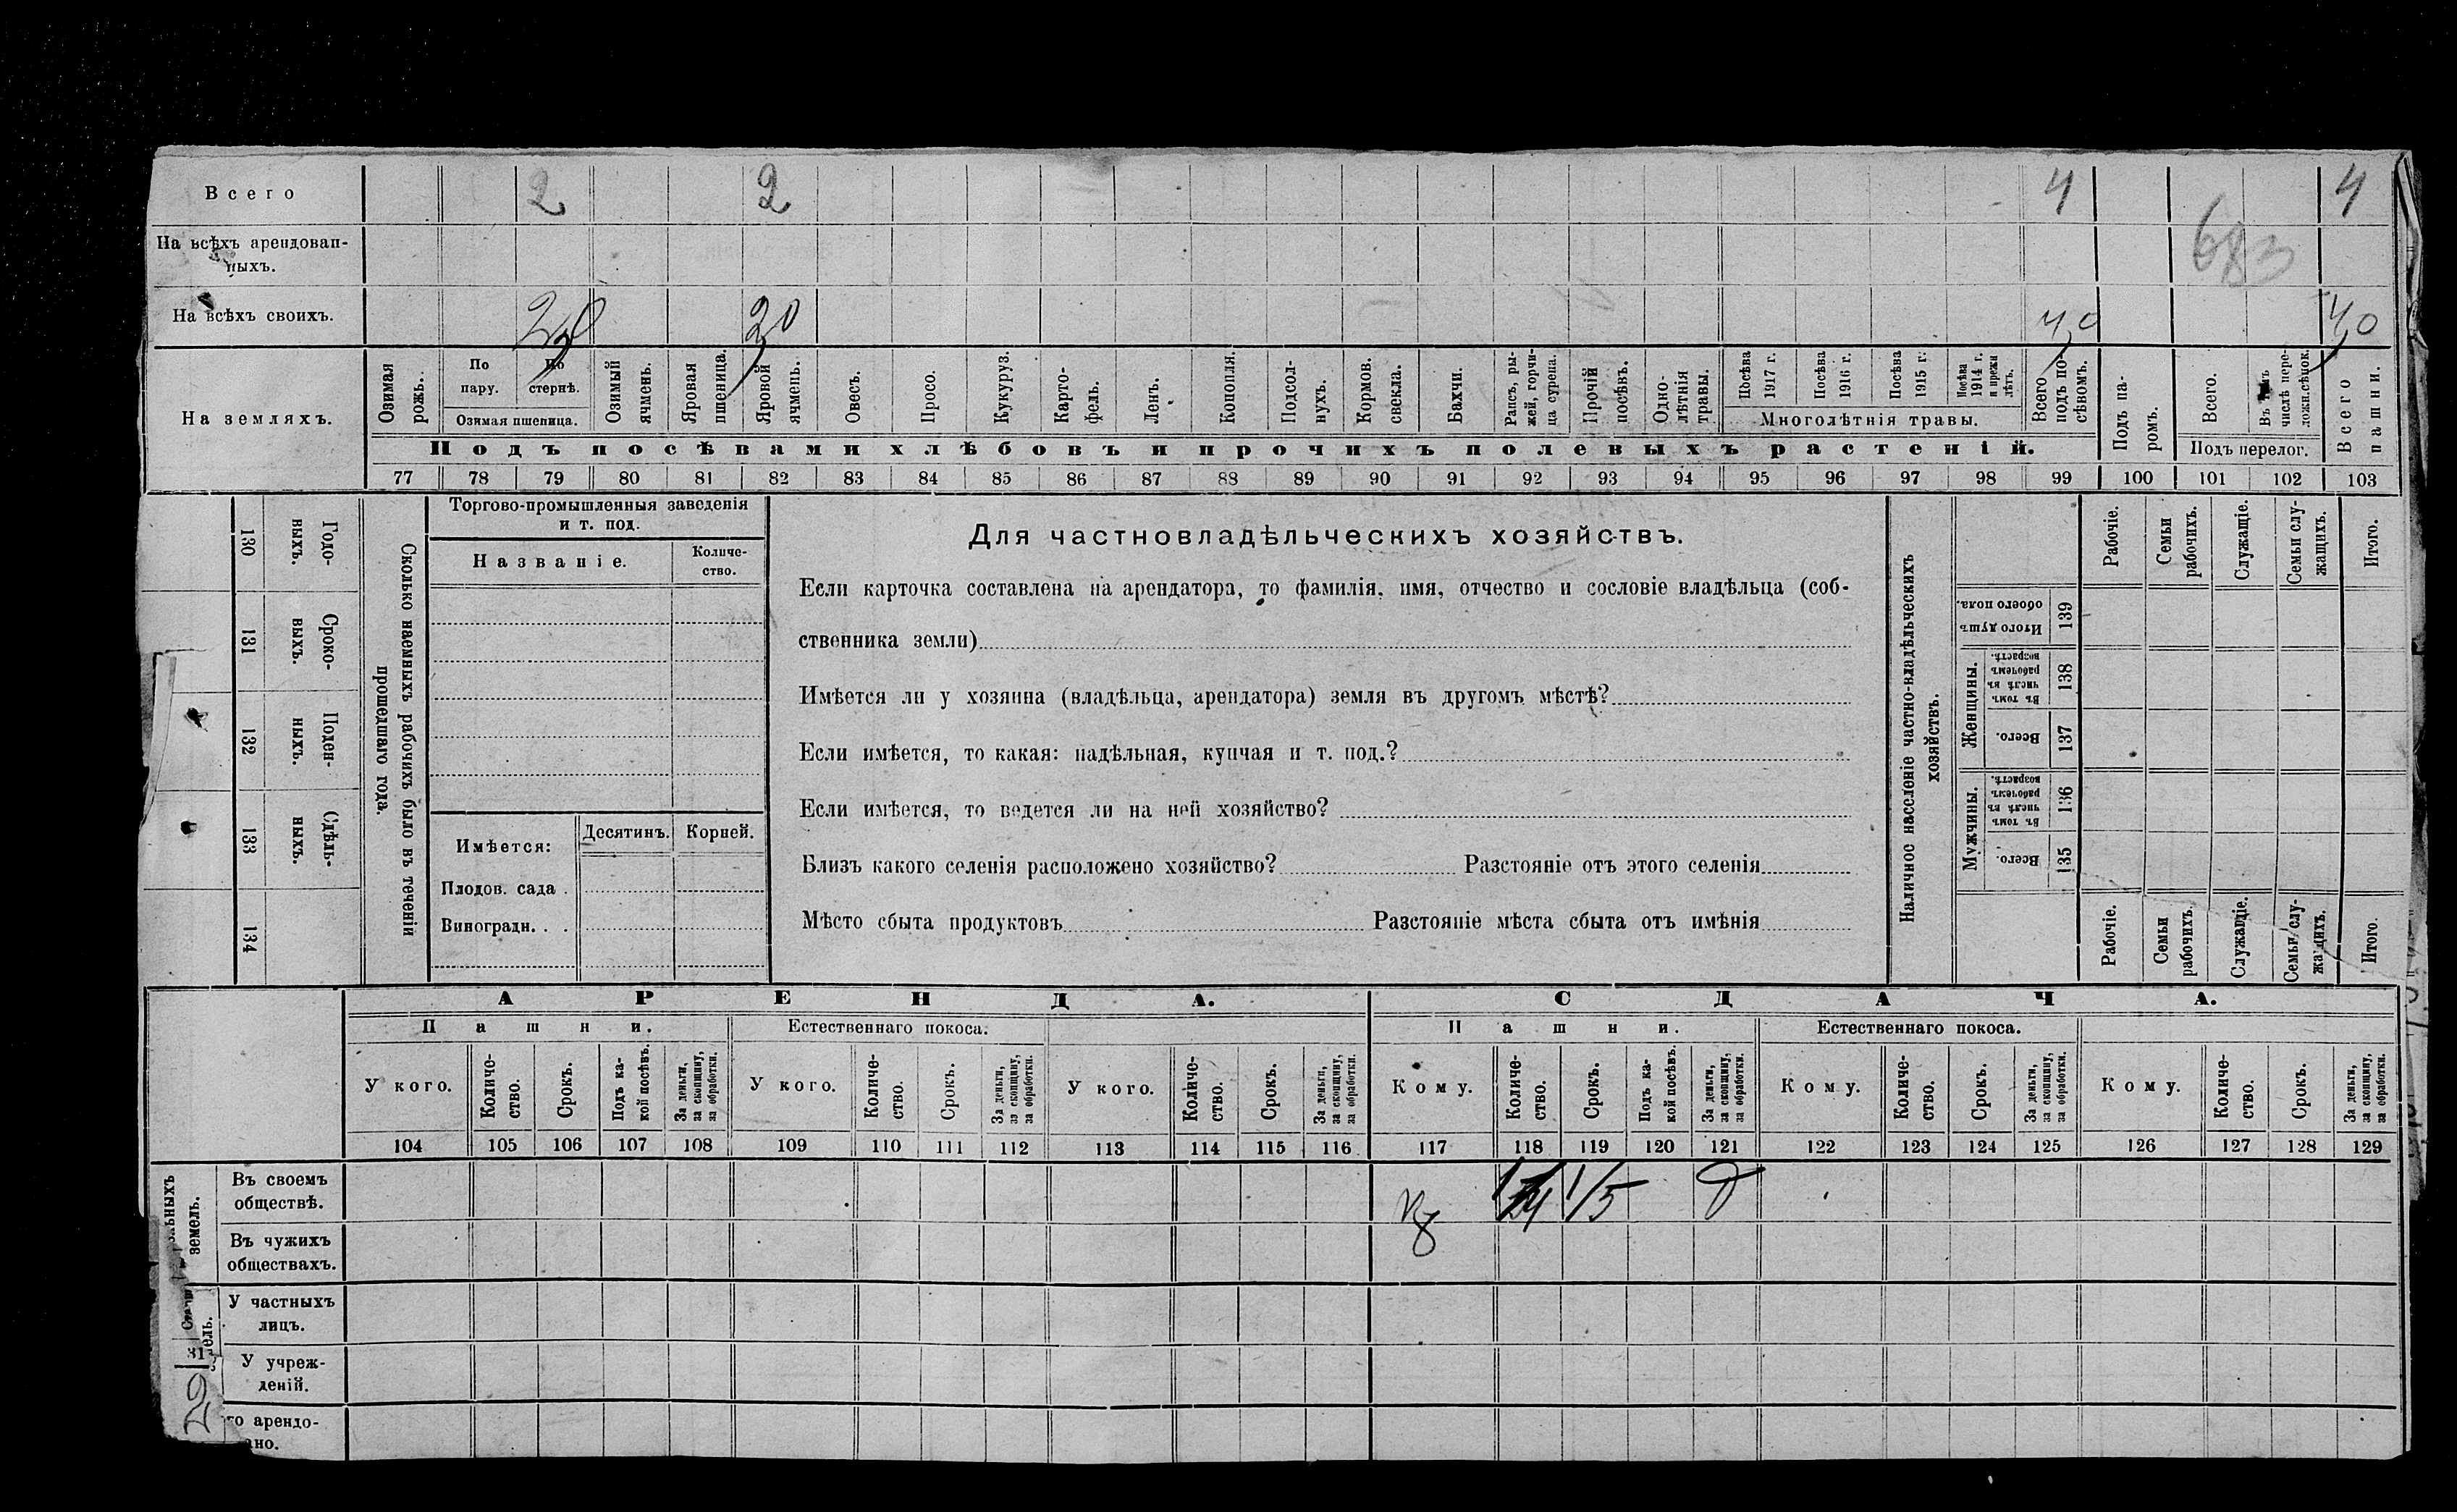 Всего 2 2 4 4
На всѣхъ арендован-
ныхъ.
683
На всѣхъ своихъ. 2,0 2,0 4,0 4,0
На земляхъ.
Озимая рожь.
По пару.
По стернѣ.
Озимая пшеница.
Озимый ячмень.
Яровая пшеница.
Яровой ячмень.
Овесъ.
Просо.
Кукуруз.
Карто-
фель.
Ленъ.
Конопля.
Подсол-
нухъ.
Кормов. свекла.
Бахчи.
Рапсъ, ры-
жей, горчи-
ца сурепа.
Прочій посѣвъ.
Одно-
лѣтнія травы.
Посѣва 1917 г.
Посѣва 1916 г.
Посѣва 1915 г.
Посѣва 1914 г. и прежн лѣтъ.
Многолѣтнія травы.
Всего подъ по-
сѣвомъ.
Подъ па-
ромъ.
Всего.
Въ томъ числѣ пере-
ложн.сѣнок.
Подъ перелог.
Всего пашни.
Подъ посѣвами хлѣбовъ и прочихъ полевыхъ растеній.
77 78 79 80 81 82 83 84 85 86 87 88 89 90 91 92 93 94 95 96 97 98 99 100 101 102 103
Сколько наемныхъ рабочихъ было въ теченіи
прошедшаго года.
Годо-
выхъ.
130
Сроко-
выхъ.
131
Поден-
ныхъ.
132
Сдѣль-
ныхъ.
133
134
Торгово-промышленныя заведенія
и т. под.
Названіе.
Количе-
ство.
Имѣется:
Десятинъ. Корней.
Плодов. сада .
Виноградн. . .
Для частновладѣльческихъ хозяйствъ.
Если карточка составлена на арендатора, то фамилія, имя, отчество и сословіе владѣльца (соб-
ственника земли)
Имѣется ли у хозяина (владѣльца, арендатора) земля въ другомъ мѣстѣ?
Если имѣется, то какая: надѣльная, купчая и т. под.?
Если имѣется, то ведется ли на ней хозяйство?
Близъ какого селенія расположено хозяйство? Разстояніе отъ этого селенія
Мѣсто сбыта продуктовъ Разстояніе мѣста сбыта отъ имѣнія
Наличное населеніе частно-владѣльческихъ
хозяйствъ.
Рабочіе.
Семьи рабочихъ.
Служащіе.
Семьи слу-
жащихъ.
Итого.
Итого душъ обоего пола.
139
Женщины.
Въ томъ числѣ въ рабочемъ возрастѣ.
138
Всего.
137
Мужчины.
Въ томъ числѣ въ рабочемъ возрастѣ.
136
Всего.
135
Рабочіе.
Семьи рабочихъ.
Служащіе.
Семьи слу-
жащихъ.
Итого.
АРЕНДА. СДАЧА.
Пашни. Естественнаго покоса. Пашни. Естественнаго покоса.
У кого.
Количе-
ство.
Срокъ.
Подъ ка-
кой посѣвъ.
За деньги, за скопщину, за обработки.
У кого.
Количе-
ство.
Срокъ.
За деньги, за скопщину, за обработки.
У кого.
Количе-
ство.
Срокъ.
За деньги, за скопщину, за обработки.
Кому.
Количе-
ство.
Срокъ.
Подъ ка-
кой посѣвъ.
За деньги, за скопщину, за обработки.
Кому.
Количе-
ство.
Срокъ.
За деньги, за скопщину, за обработки.
Кому.
Количе-
ство.
Срокъ.
За деньги, за скопщину, за обработки.
104 105 106 107 108 109 110 111 112 113 114 115 116 117 118 119 120 121 122 123 124 125 126 127 128 129
земель.
Въ своемъ
обществѣ.
1/5 д
Въ чужихъ
обществахъ.
У частныхъ
лицъ.
У учреж-
деній.
арендо-
29